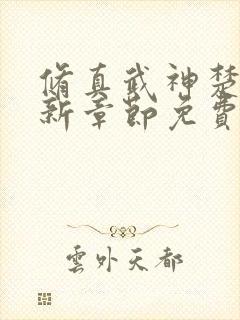 脩真武神楚
新章節免費
雲外天都